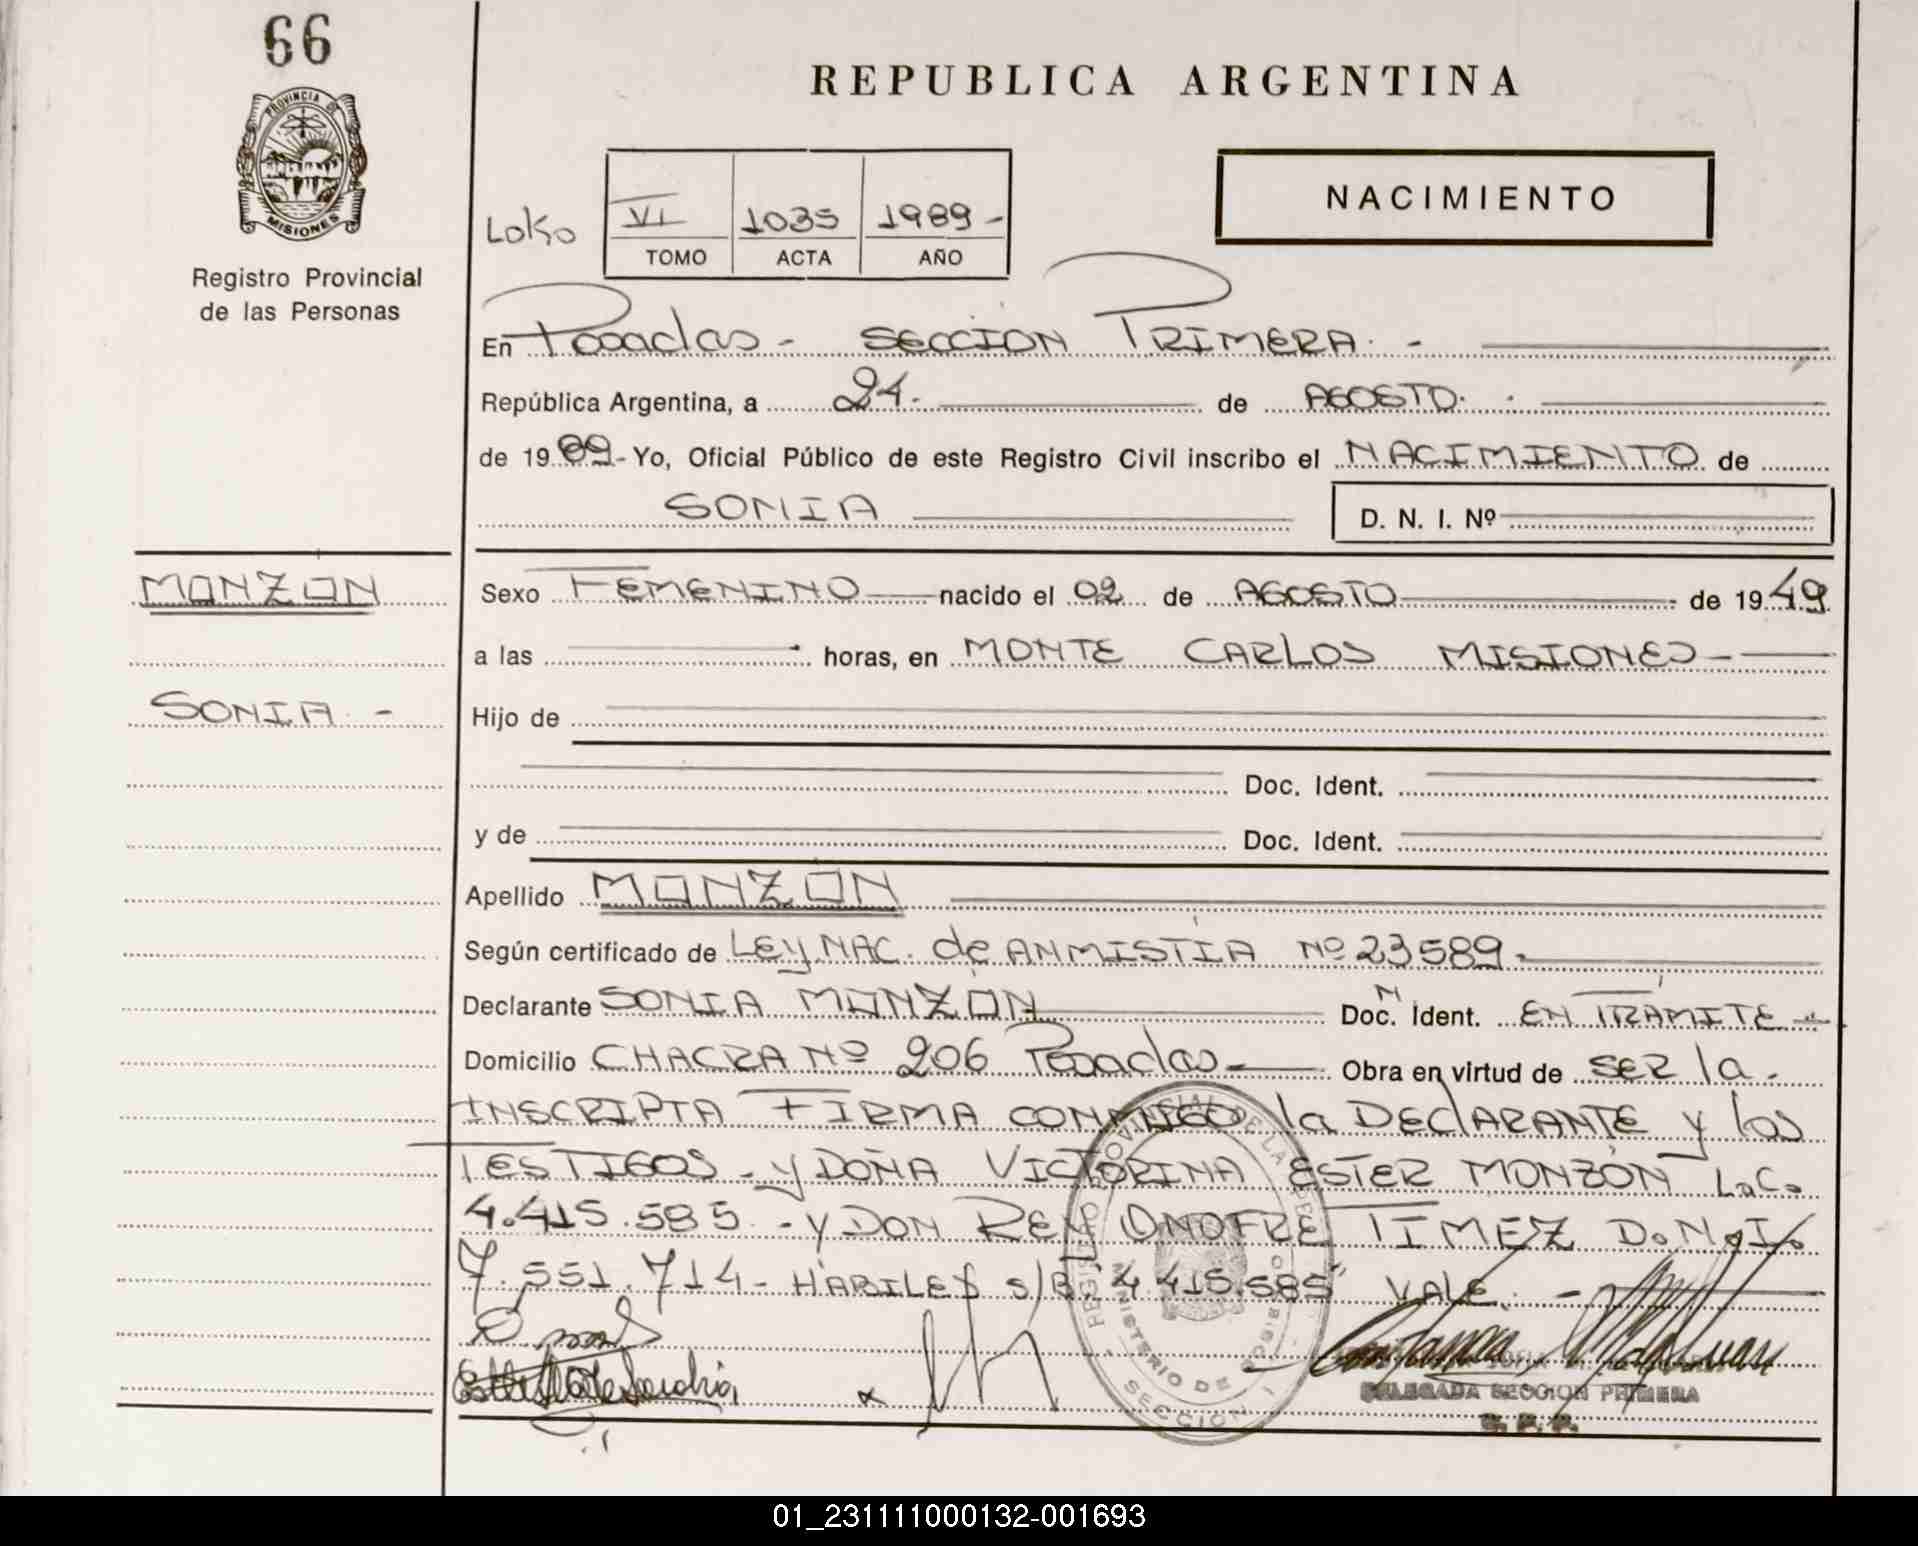 66
REPUBLICA ARGENTINA
PROVINCIA DE
MISIONES
Registro Provincial
de las Personas
NACIMIENTO
VI 1035 1989-
TOMO ACTA AÑO
En Posadas - SECCION PRIMERA. -
República Argentina, a 24. de AGOSTO.
de 1989- Yo, Oficial Público de este Registro Civil inscribo el NACIMIENTO de
SONIA
D. N. I. Nº
MONZON
SONIA. -
Sexo FEMENINO nacido el 02 de AGOSTO de 1949
a las horas, en MONTE CARLOS MISIONES-
Hijo de
Doc. Ident.
y de Doc. Ident.
Apellido MONZON
Según certificado de LEY NAC. de ANMISTIA Nº 23589.
Declarante SONIA MONZON Doc. Ident. EN TRAMITE-
Domicilio CHACRA Nº 206 Posadas- Obra en virtud de SER la.
INSCRIPTA FIRMA CONMIGO la DECLARANTE y los
TESTIGOS - y DOÑA VICTORINA ESTER MONZÓN L.C.
4.415.585. - y DON REY ONOFRE TIMEZ D.N.I.
7.551.714- HABILES s/B: "4.415.585" VALE. -
DELEGADA SECCION PRIMERA
R. P. P.
REGISTRO PROVINCIAL DE LAS PERSONAS
MINISTERIO DE GOBIERNO
SECCION I
01_231111000132-001693